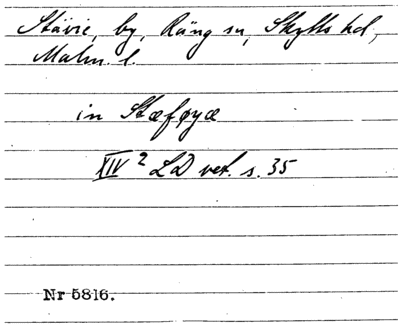 Stävie, by, Räng sn, Skytts hd,
Malm. l.
in Stæføyæ
XIV 2 LD vet. s. 35
Nr 5816.